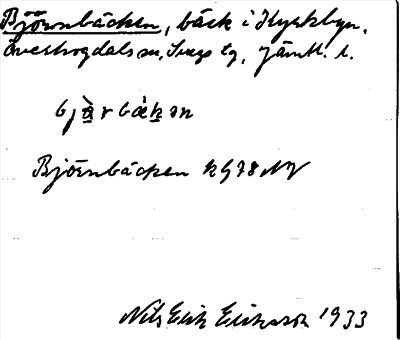 Björnbäcken, bäck i Kyrkbyn,
Överhogdals sn, Svegs tg, Jämtl. l.
Björnbäcken
Nils Erik Eriksson 1933